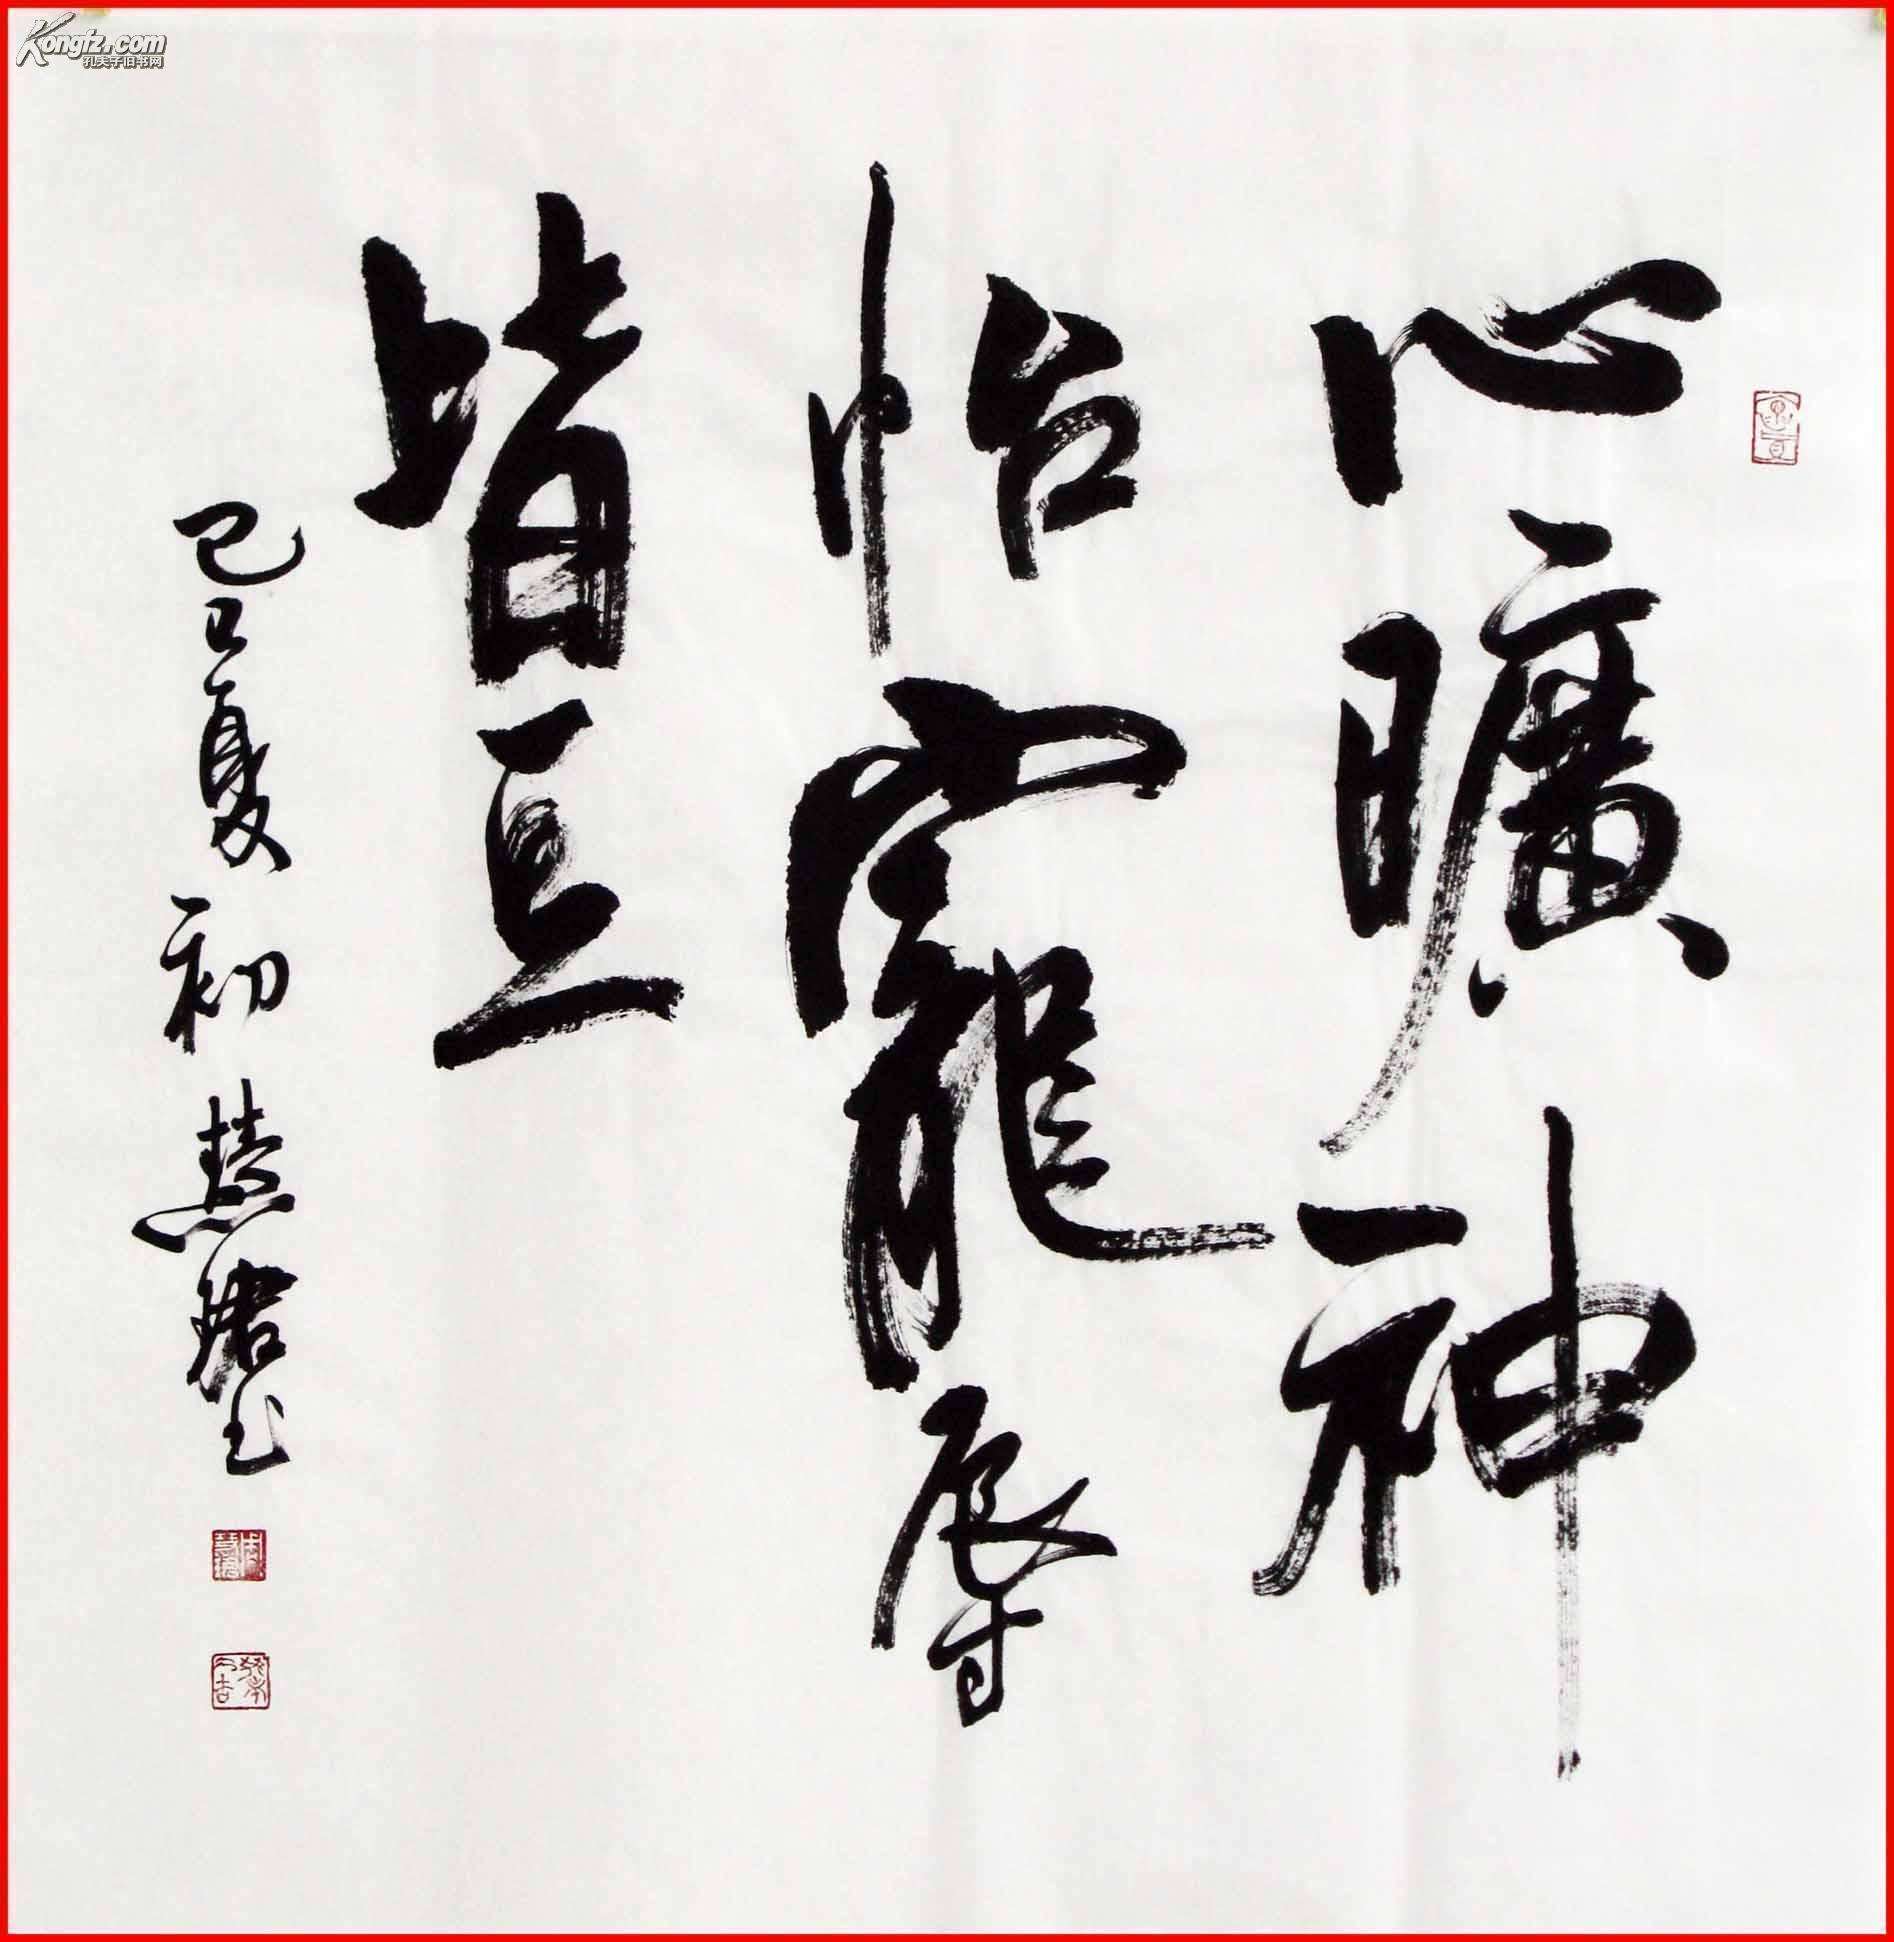 Kongfz.com
孔夫子旧书网
心曠神
怡寵辱
皆
己巳夏初慧珺书